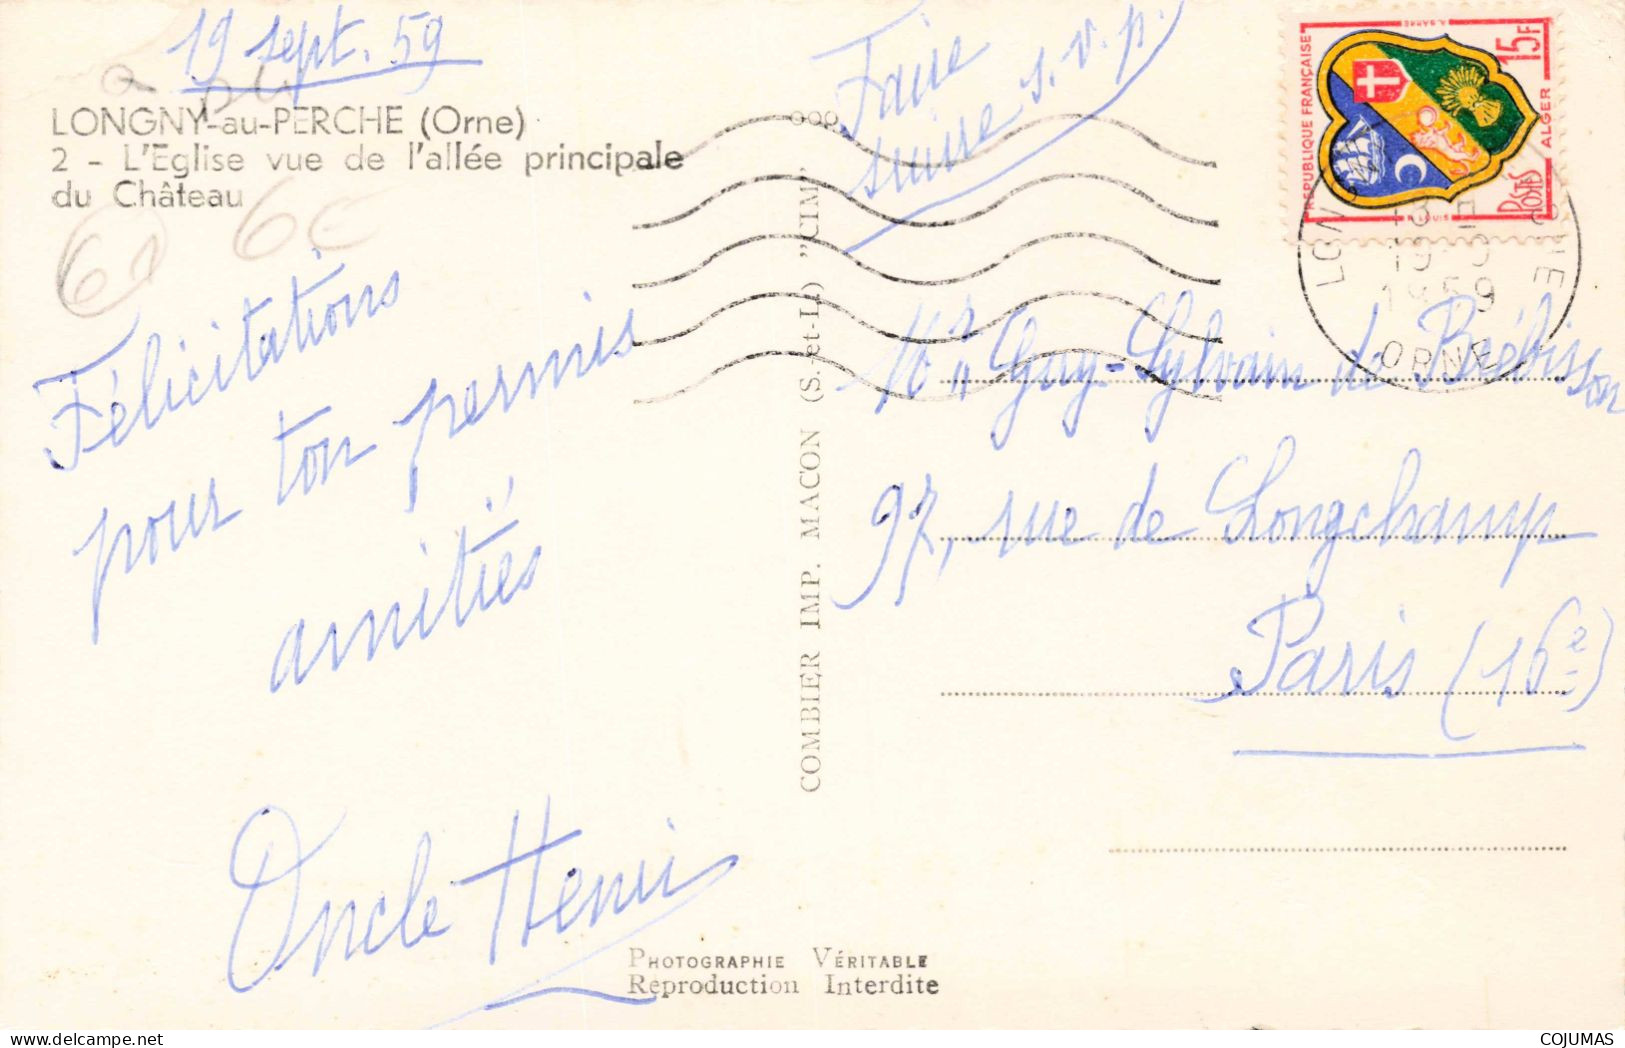 19 sept. 59
LONGNY-au-PERCHE (Orne)
2 - L'Eglise vue de l'allée principale
du Château
6€
Félicitations
pour ton permis
amitiés
Oncle Henri
PHOTOGRAPHIE VÉRITABLE
Reproduction Interdite
COMBIER IMP. MACON (S.-et-L.) "CIM"
Faire
suivre s.v.p.
RÉPUBLIQUE FRANÇAISE
15F
ALGER
POSTES
1959
ORNE
Guy-Sylvain de Brébisson
97, rue de Longchamp
Paris (16e)
COJUMAS